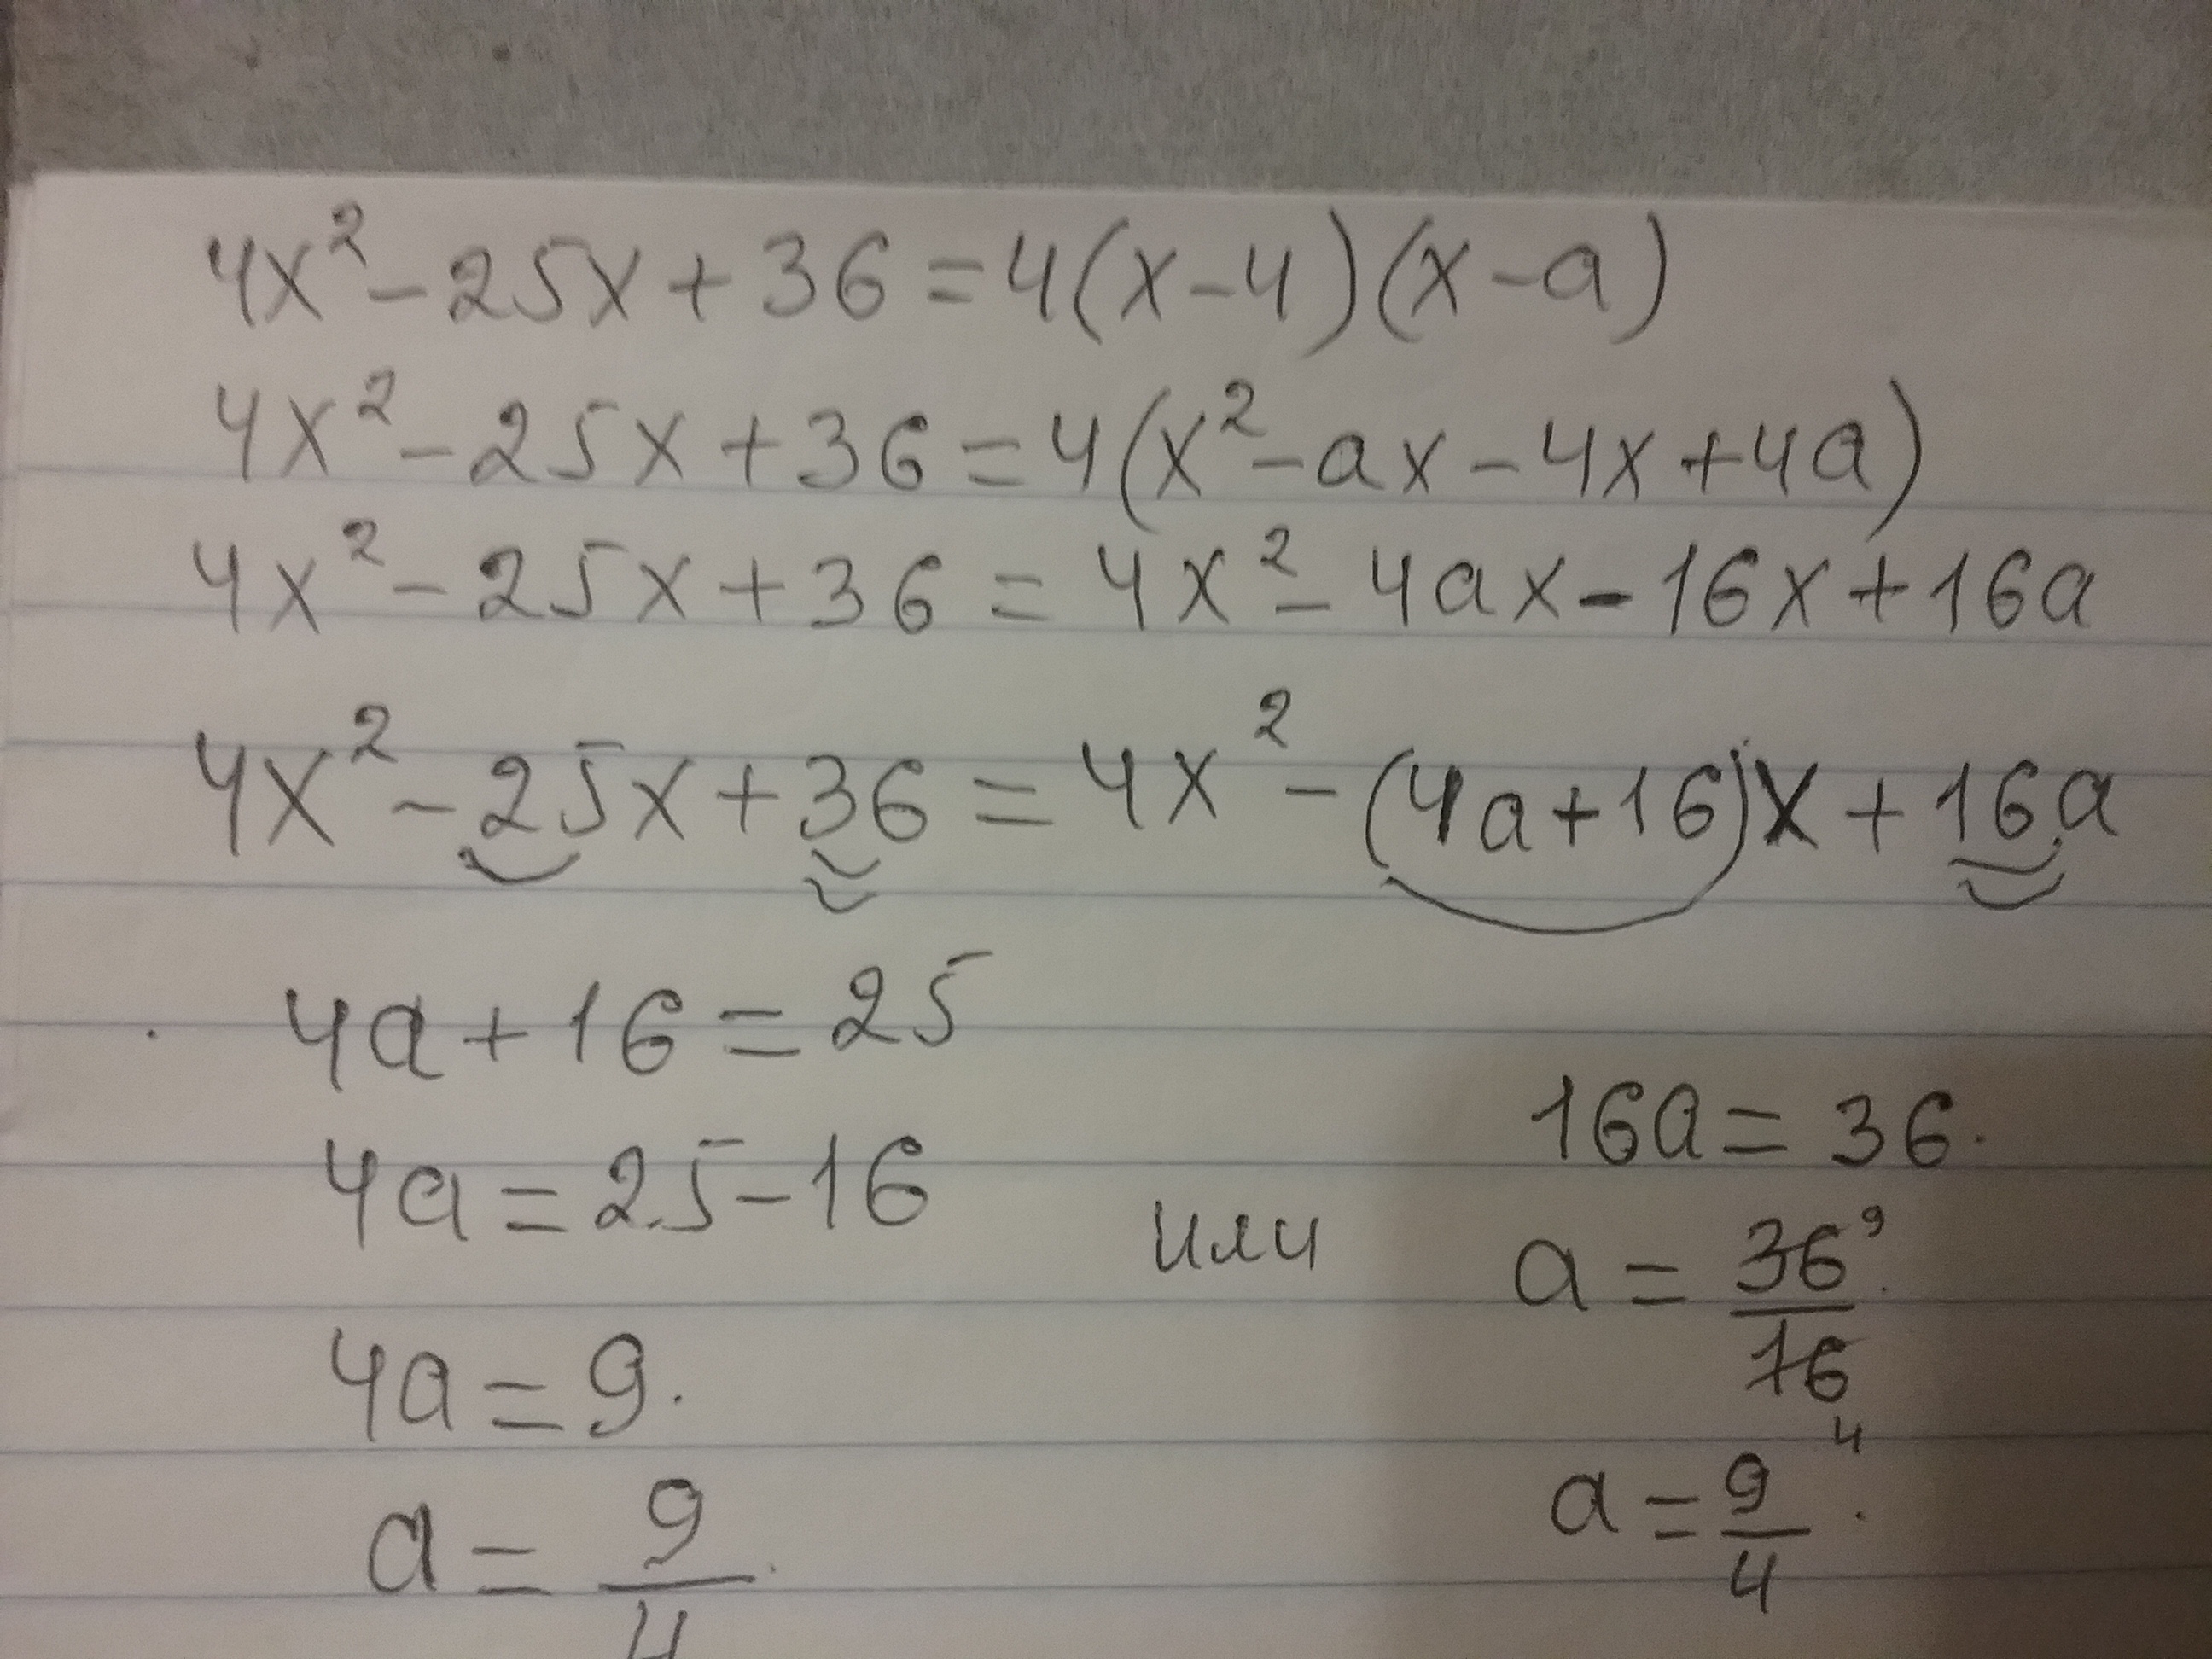 4x² - 25x + 36 = 4(x - 4)(x - a)
4x² - 25x + 36 = 4(x² - ax - 4x + 4a)
4x² - 25x + 36 = 4x² - 4ax - 16x + 16a
4x² - 25x + 36 = 4x² - (4a + 16)x + 16a
4a + 16 = 25
4a = 25 - 16
4a = 9.
a = 9/4
или
16a = 36.
a = 36⁹/16₄
a = 9/4.